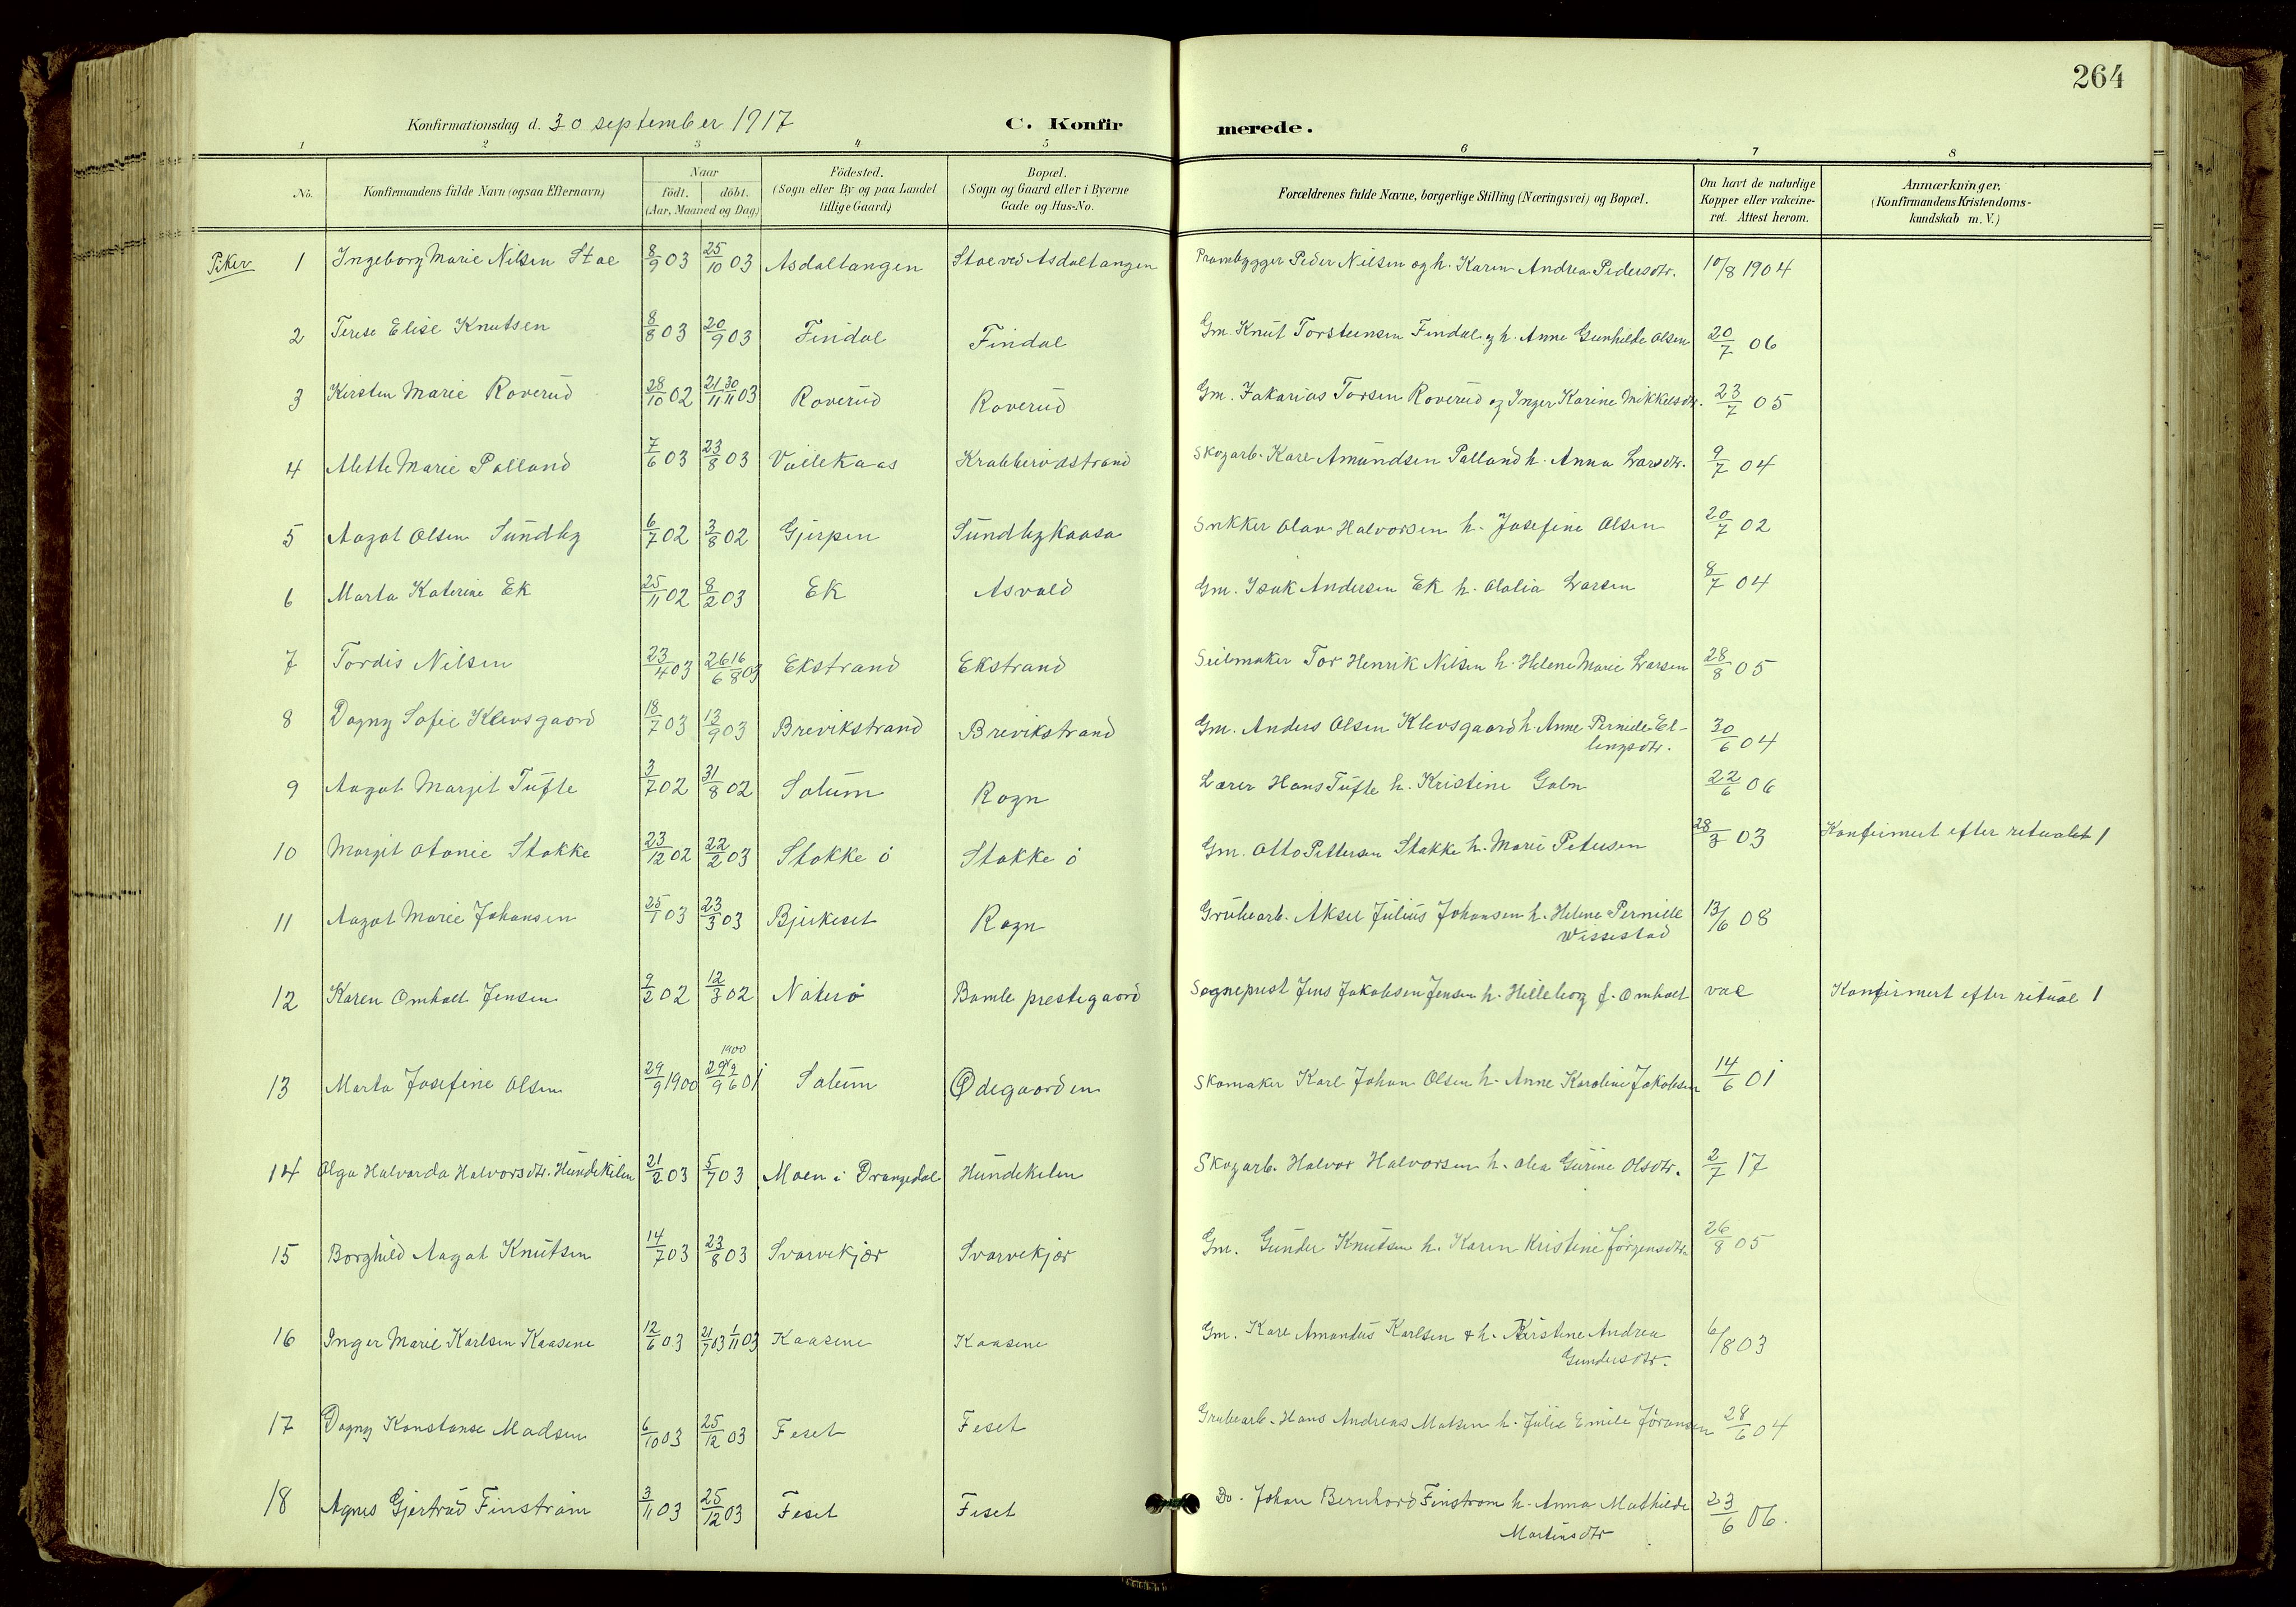 264
Konfirmationsdag d. 30 september 1917
C. Konfir
merede.
1 2 3 4 5 6 7 8
No.
Konfirmandens fulde Navn (ogsaa Efternavn)
Naar
födt. döbt.
(Aar, Maaned og Dag)
Födested.
(Sogn eller By og paa Landet
tillige Gaard)
Bopæl.
(Sogn og Gaard eller i Byerne
Gade og Hus-No.
Forældrenes fulde Navne, borgerlige Stilling (Næringsvei) og Bopæl.
Om havt de naturlige
Kopper eller vakcine-
ret. Attest herom.
Anmærkninger.
(Konfirmandens Kristendoms-
kundskab m. V.)
Piker 1 Ingeborg Marie Nilsen Stoe 8/9 03 25/10 03 Asdaltangen Stoe ved Asdaltangen Prambygger Peder Nilsen og h. Karen Andrea Pedersdtr. 10/8 1904
2 Terese Elise Knutsen 8/8 03 20/9 03 Findal Findal Gm. Knut Torsteensen Findal og h. Anne Gunhilde Olsen 20/7 06
3 Kirsten Marie Roverud 28/10 02 21/11 30/11 03 Roverud Roverud Gm. Zakarias Torsen Roverud og Inger Karine Mikkelsdtr. 23/7 05
4 Mette Marie Palland 7/6 03 23/8 03 Vallekaas Krabberødstrand Skogarb. Karl Amundsen Palland h. Anna Larsdtr. 9/7 04
5 Aagot Olsen Sundby 6/7 02 3/8 02 Gjerpen Sundbykaasa Snikker Olav Halvorsen h. Josefine Olsen 20/7 02
6 Marta Katerine Ek 25/11 02 8/2 03 Ek Asvald Gm. Isak Andersen Ek h. Olalia Larsen 8/7 04
7 Tordis Nilsen 23/4 03 26/6 16/8 03 Ekstrand Ekstrand Seilmaker Tor Henrik Nilsen h. Helene Marie Larsen 28/8 05
8 Dagny Sofie Klevsgaard 18/7 03 13/9 03 Brevikstrand Brevikstrand Gm. Anders Olsen Klevsgaard h. Anne Pernille El-
lingsdtr. 30/6 04
9 Aagot Margit Tufte 3/7 02 31/8 02 Solum Rogn Lærer Hans Tufte h. Kristine 22/6 06
10 Margit Otonie Stokke 23/12 02 22/2 03 Stokke ö Stokke ö Gm. Otto Pettersen Stokke h. Marie Petersen 28/3 03 Konfirmert efter ritualet 1
11 Aagot Marie Johansen 25/1 03 23/3 03 Bjerkeset Rogn Grubearb. Aksel Julius Johansen h. Helene Pernille
Wissestad 13/6 08
12 Karen Omholt Jensen 9/2 02 12/3 02 Nøterø Bamle prestegaard Sogneprest Jens Jakobsen Jensen h. Helleborg f. Omholt vac Konfirmert efter ritual 1
13 Marta Josefine Olsen 29/9 1900 1900 29/9 2/6 01 Solum Ødegaarden Skomaker Karl Johan Olsen h. Anne Karoline Jakobsen 14/6 01
14 Olga Halvarda Halvorsdtr. Hundekilen 21/2 03 5/7 03 Moen i Drangedal Hundekilen Skogarb. Halvor Halvorsen h. Olea Gurine Olsdtr. 2/7 17
15 Borghild Aagot Knutsen 14/7 03 23/8 03 Svarvekjær Svarvekjær Gm. Gunder Knutsen h. Karen Kristine Jörgensdtr. 26/8 05
16 Inger Marie Karlsen Kaasene 12/6 03 21/7 03 1/11 03 Kaasene Kaasene Gm. Karl Amandus Karlsen & h. Kirstine Andrea
Gundersdtr. 6/8 03
17 Dagny Konstanse Madsen 6/10 03 25/12 03 Feset Feset Grubearb. Hans Andreas Matsen h. Julie Emilie Jöransen 28/6 04
18 Agnes Gjertrud Finström 3/11 03 25/12 03 Feset Feset Do. Johan Bernhard Finstrom h. Anna Mathilde
Martinsdtr 23/6 06.